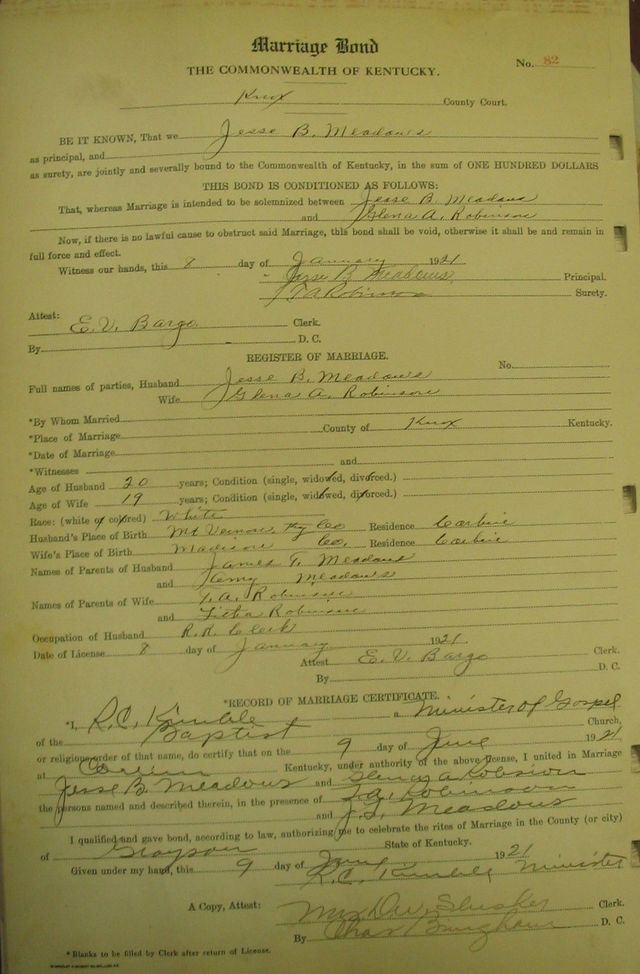 Marriage Bond
No. 82
THE COMMONWEALTH OF KENTUCKY.
Knox County Court.
BE IT KNOWN, That we Jesse B. Meadows
as principal, and
as surety, are jointly and severally bound to the Commonwealth of Kentucky, in the sum of ONE HUNDRED DOLLARS
THIS BOND IS CONDITIONED AS FOLLOWS:
That, whereas Marriage is intended to be solemnized between Jesse B. Meadows
and Glena A. Robinson
Now, if there is no lawful cause to obstruct said Marriage, this bond shall be void, otherwise it shall be and remain in
full force and effect.
Witness our hands, this 8 day of January 1921
Jesse B Meadows Principal.
T A Robinson Surety.
Attest:
E. V. Bargo Clerk.
By D. C.
REGISTER OF MARRIAGE.
No.
Full names of parties, Husband Jesse B. Meadows
Wife Glena A. Robinson
*By Whom Married
*Place of Marriage County of Knox Kentucky.
*Date of Marriage
*Witnesses and
Age of Husband 20 years; Condition (single, widowed, divorced.)
Age of Wife 19 years; Condition (single, widowed, divorced.)
Race: (white or colored) White
Husband's Place of Birth Mt Vernon, Ky Co Residence Corbin
Wife's Place of Birth Madison Co. Residence Corbin
Names of Parents of Husband James T. Meadows
and Meadows
Names of Parents of Wife T. A. Robinson
and Robinson
Occupation of Husband R. R. Clerk
Date of License 8 day of January 1921
Attest E. V. Bargo Clerk.
By D. C.
*RECORD OF MARRIAGE CERTIFICATE.
*I, R. C. Kimble a Minister of Gospel
of the Baptist Church,
or religious order of that name, do certify that on the 9 day of 1921
at Corbin Kentucky, under authority of the above license, I united in Marriage
Jesse B. Meadows and
the persons named and described therein, in the presence of T. A. Robinson
and J. T. Meadows
I qualified and gave bond, according to law, authorizing me to celebrate the rites of Marriage in the County (or city)
of Grayson State of Kentucky.
Given under my hand, this 9 day of 1921
R. C. Kimble Minister
A Copy, Attest: Clerk.
By Chas Bingham D. C.
*Blanks to be filled by Clerk after return of License.